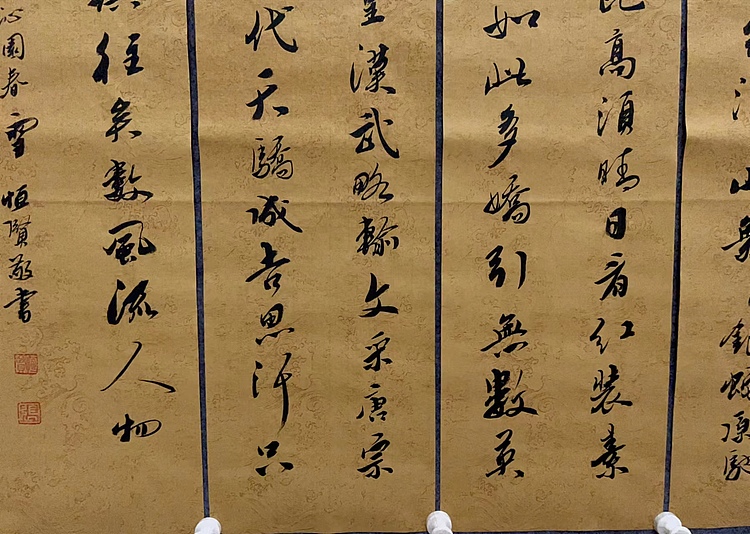 山舞銀蛇原馳
高須晴日看紅裝素
如此多嬌引無數英
皇漢武略輸文采唐宗
代天驕成吉思汗只
往矣數風流人物
沁園春雪 恒賢敬書